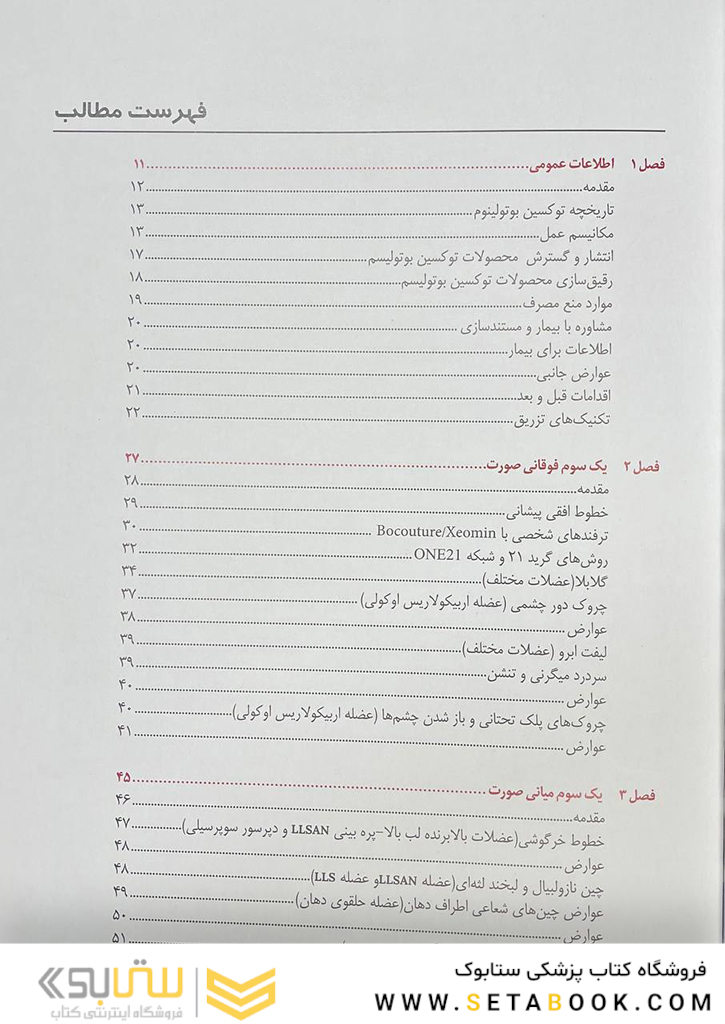 فهرست مطالب
فصل ۱ اطلاعات عمومی ۱۱
مقدمه ۱۲
تاریخچه توکسین بوتولینوم ۱۳
مکانیسم عمل ۱۳
انتشار و گسترش محصولات توکسین بوتولیسم ۱۷
رقیق‌سازی محصولات توکسین بوتولیسم ۱۸
موارد منع مصرف ۱۹
مشاوره با بیمار و مستندسازی ۲۰
اطلاعات برای بیمار ۲۰
عوارض جانبی ۲۰
اقدامات قبل و بعد ۲۱
تکنیک‌های تزریق ۲۲
فصل ۲ یک سوم فوقانی صورت ۲۷
مقدمه ۲۸
خطوط افقی پیشانی ۲۹
ترفندهای شخصی با Bocouture/Xeomin ۳۰
روش‌های گرید ۲۱ و شبکه ONE21 ۳۲
گلابلا(عضلات مختلف) ۳۴
چروک دور چشمی (عضله اربیکولاریس اوکولی) ۳۷
عوارض ۳۸
لیفت ابرو (عضلات مختلف) ۳۹
سردرد میگرنی و تنشن ۳۹
عوارض ۴۰
چروک‌های پلک تحتانی و باز شدن چشم‌ها (عضله اربیکولاریس اوکولی) ۴۰
عوارض ۴۱
فصل ۳ یک سوم میانی صورت ۴۵
مقدمه ۴۶
خطوط خرگوشی(عضلات بالابرنده لب بالا-پره بینی LLSAN و دپرسور سوپرسیلی) ۴۷
عوارض ۴۸
چین نازولبیال و لبخند لثه‌ای(عضله LLSANو عضله LLS) ۴۸
عوارض چین‌های شعاعی اطراف دهان(عضله حلقوی دهان) ۴۹
عوارض ۵۰
۵۱
فروشگاه کتاب پزشکی ستابوک
WWW.SETABOOK.COM
ستابوک
فروشگاه اینترنتی کتاب